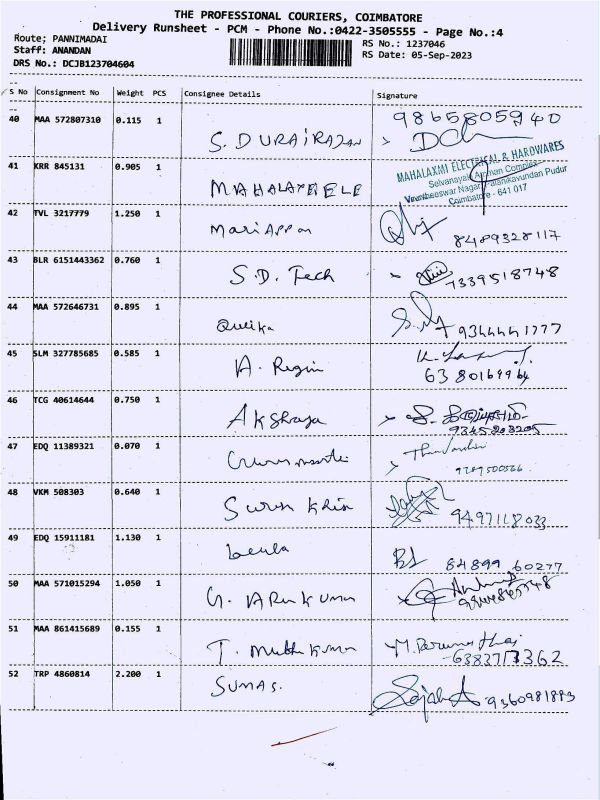 THE PROFESSIONAL COURIERS, COIMBATORE
Delivery Runsheet - PCM - Phone No.:0422-3505555 - Page No.:4
Route; PANNIMADAI
Staff: ANANDAN
DRS No.: DCJB123704604
RS No.: 1237046
RS Date: 05-Sep-2023
S No Consignment No Weight PCS Consignee Details Signature
40 MAA 572807310 0.115 1 S. DURAIRAJAN 9865805940
41 KRR 845131 0.905 1 MAHALAXMI ELECTRICAL & HARDWARES
Selvanayaki Amman Complex
Vigneetheeswar Nagar, Palanikavundan Pudur
Coimbatore - 641 017
42 TVL 3217779 1.250 1 Mariappan 8489328117
43 BLR 6151443362 0.760 1 S.D. Tech 7339518748
44 MAA 572646731 0.895 1 9344441777
45 SLM 327785685 0.585 1 A. Regin 6380169964
46 TCG 40614644 0.750 1 Akshaya 9345203205
47 EDQ 11389321 0.070 1
48 VKM 508303 0.640 1 9497118033
49 EDQ 15911181 1.130 1 84899 60277
50 MAA 571015294 1.050 1 G. ARUN KUMAR
51 MAA 861415689 0.155 1 T. Muthu Kumar
52 TRP 4860814 2.200 1 SUMAS. 9360981883